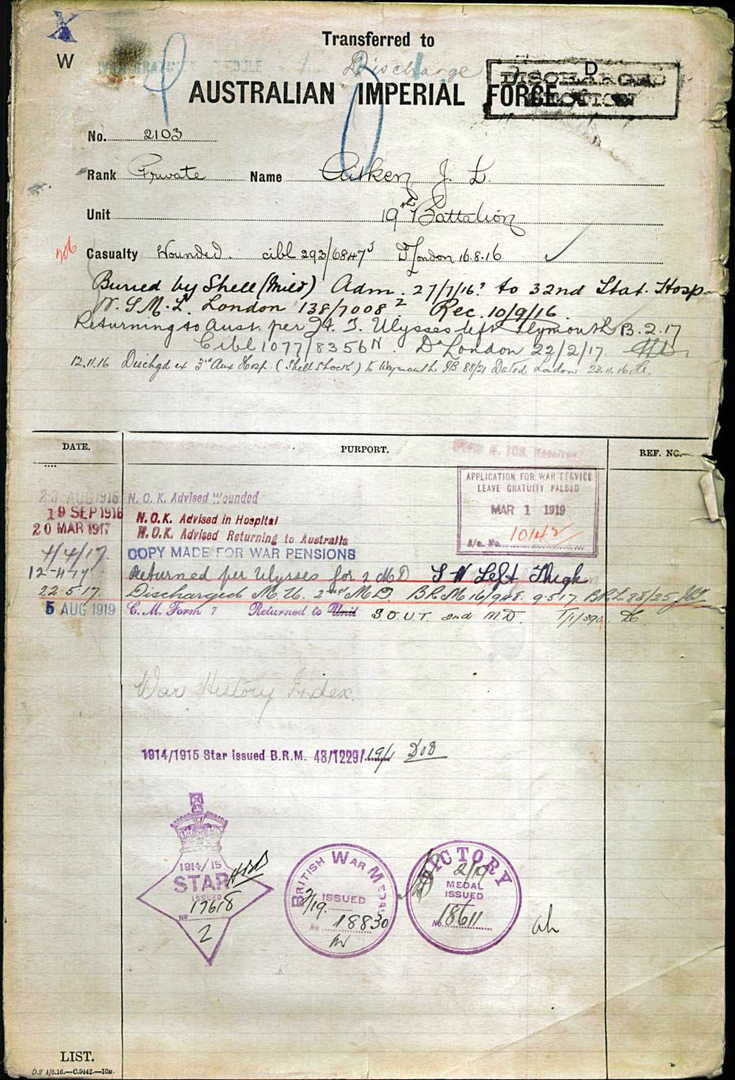 X
W
Transferred to
Discharge
AUSTRALIAN IMPERIAL FORCE
D
DISCHARGED
SECTION
No. 2103
Rank Private Name Aitken J. L.
Unit 19th Battalion
Casualty Wounded. cibl 293/6847 D London 16.8.16
Buried by Shell (Mild) Adm. 27/7/16 to 32nd Stat. Hosp
London 138/7008 Rec. 10/9/16.
Returning to Aust. per H. T. Ulysses left Plymouth 13.2.17
Cibl 1077/8356N. D London 22/2/17
12.11.16 Dischgd ex 3rd Aux Hosp. (Shell Shock) to Weymouth 88/21 Dated London
DATE. PURPORT. REF. NO.
AUG 1916 N.O.K. Advised Wounded
19 SEP 1916 N.O.K. Advised in Hospital
20 MAR 1917 N.O.K. Advised Returning to Australia
APPLICATION FOR WAR SERVICE
LEAVE GRATUITY PASSED
MAR 1 1919
No. 10142
4/4/17 COPY MADE FOR WAR PENSIONS
12-4-17 Returned per Ulysses for 2 MD S W Left Thigh
22.5.17 Discharged M.U. 2nd M.D. B.R.M 16/908. 9.5.17 B.R.L 28/25
5 AUG 1919 C. M. Form 7 Returned to Unit S.O.U.T. and M.D.
War History Index.
1914/1915 Star Issued B.R.M. 48/1229/
1914/15
STAR
ISSUED
No 17618
2
BRITISH WAR MEDAL
ISSUED
2/19
No. 18830
VICTORY
2/19
MEDAL
ISSUED
No. 18611
ah
LIST.